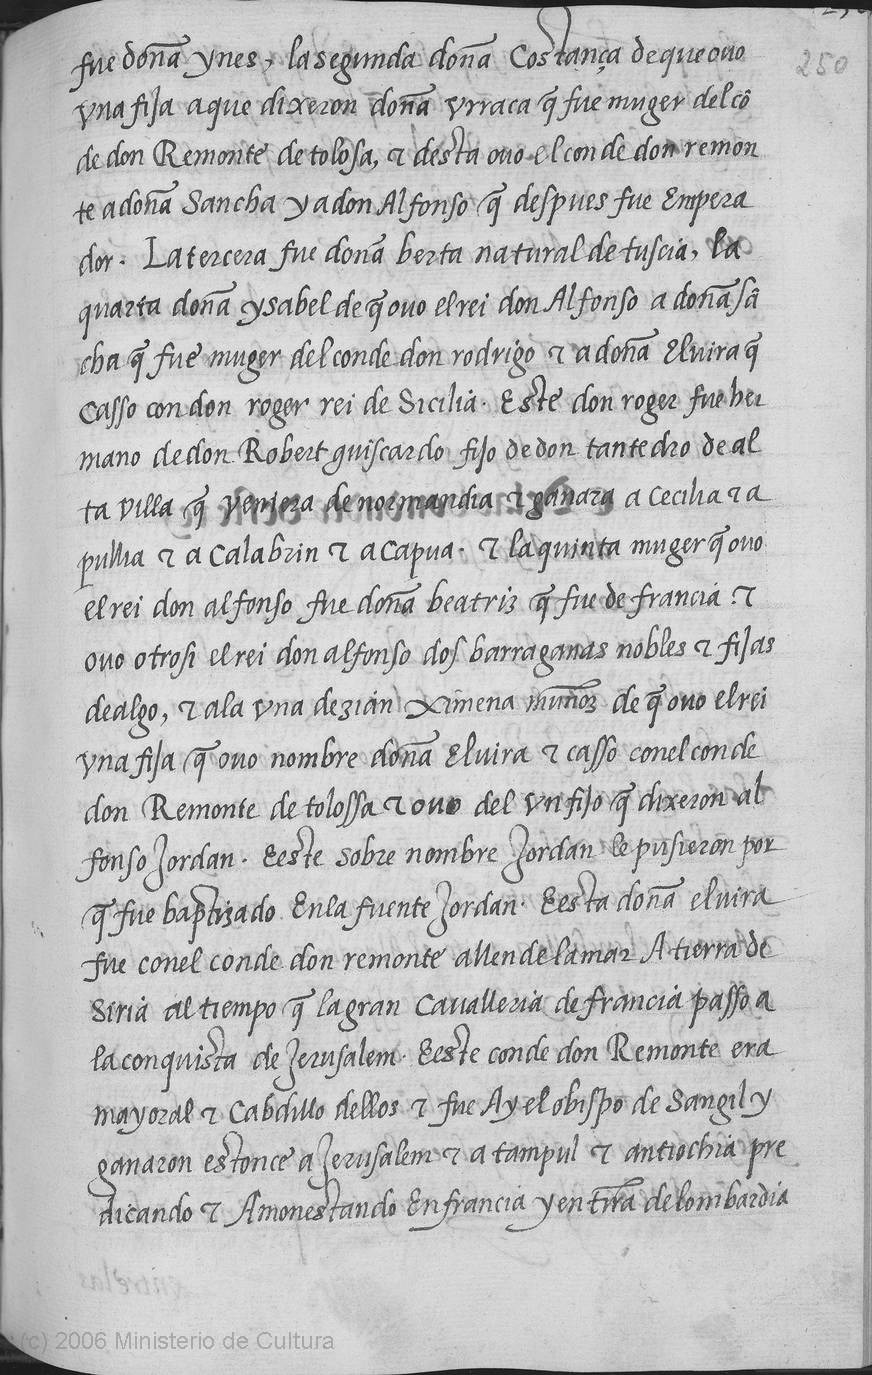 250
fue doña ynes, la segunda doña Costança de que ouo
vna fija a que dixeron doña vrraca q̃ fue muger del cõ
de don Remonte de tolosa, τ desta ouo el conde don remon
te a doña Sancha y a don Alfonso q̃ despues fue Empera
dor. La tercera fue doña berta natural de tuscia, la
quarta doña ysabel de q̃ ouo el rei don Alfonso a doña sã
cha q̃ fue muger del conde don rodrigo τ a doña Eluira q̃
casso con don roger rei de Sicilia. Este don roger fue her
mano de don Robert guiscardo fijo de don tantedro de al
ta villa q̃ veniera de normandia τ ganara a Cecilia τ a
pullia τ a Calabrin τ a Capua. τ la quinta muger q̃ ouo
el rei don alfonso fue doña beatriz q̃ fue de francia. τ
ouo otrosi el rei don alfonso dos barraganas nobles τ fijas
dealgo, τ ala vna dezian Ximena muñoz de q̃ ouo el rei
vna fija q̃ ouo nombre doña Eluira τ casso con el conde
don Remonte de tolossa τ ouo del vn fijo q̃ dixeron al
fonso Jordan. Eeste sobre nombre Jordan le pusieron por
q̃ fue baptizado En la fuente Jordan. Eesta doña eluira
fue con el conde don remonte allende la mar A tierra de
Siria al tiempo q̃ la gran Caualleria de francia passo a
la conquista de Jerusalem. Eeste conde don Remonte era
mayoral τ Cabdillo dellos τ fue Ay el obispo de Sangil y
ganaron estonce a Jerusalem τ a tampul τ antiochia pre
dicando τ Amonestando En francia y en tr̃ra de lombardia
(c) 2006 Ministerio de Cultura